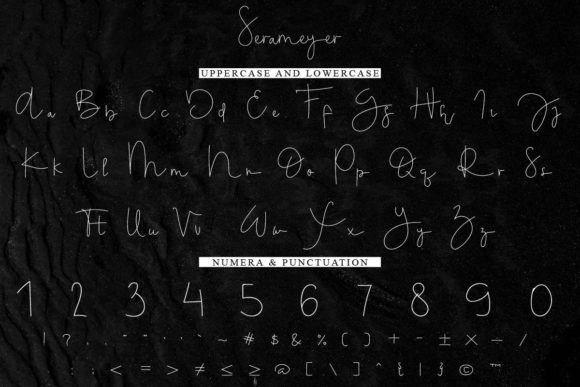 Serameyer
UPPERCASE AND LOWERCASE
Aa Bb Cc Dd Ee Ff Gg Hh Ii Jj
Kk Ll Mm Nn Oo Pp Qq Rr Ss
Tt Uu Vv Ww Xx Yy Zz
NUMERA & PUNCTUATION
1 2 3 4 5 6 7 8 9 0
! ? . . " " ' ' ~ # $ & % ( ) + - ± × ÷ /
: : < = > ≠ ≤ ≥ @ [ \ ] ^ { | } © ™